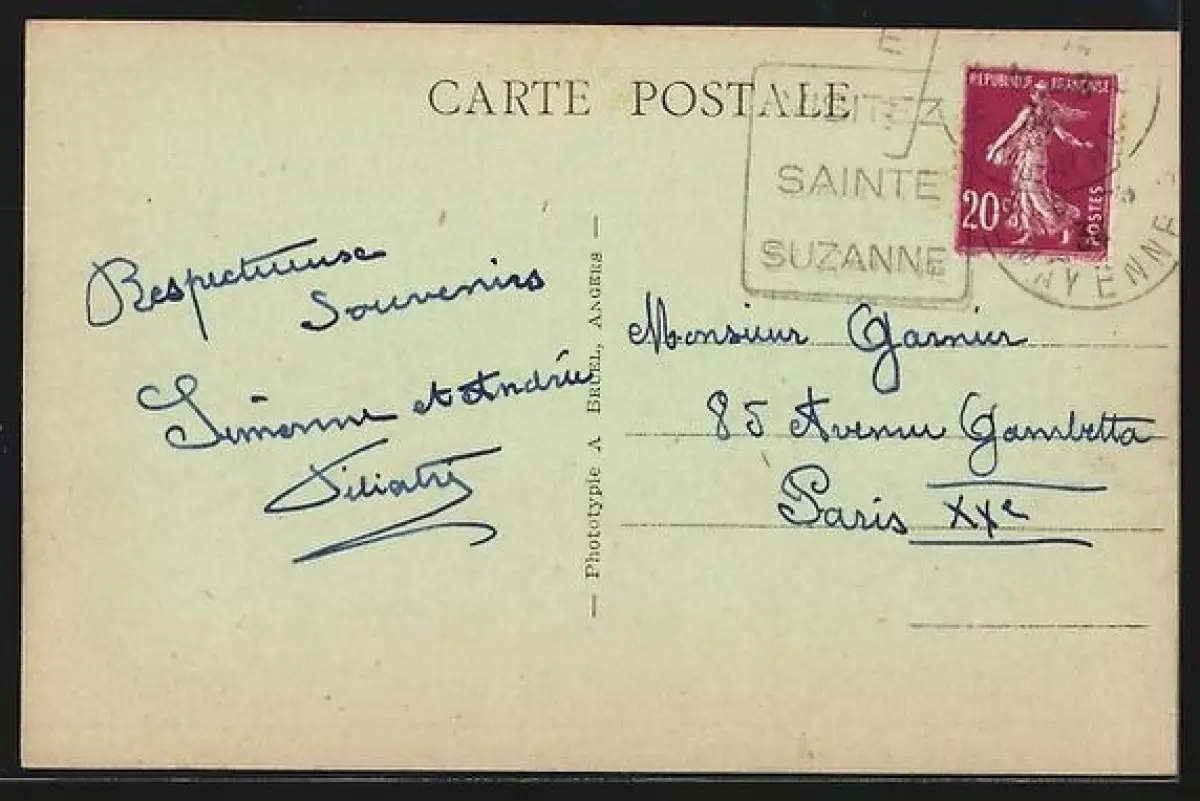 CARTE POSTALE
E
VISITEZ
SAINTE
SUZANNE
REPUBLIQUE FRANÇAISE
20c
POSTES
MAYENNE
Respectueux
Souvenirs
Simonne et Andrée
— Phototypie A BRUEL, ANGERS —
Monsieur Garnier
85 Avenue Gambetta
Paris XXe